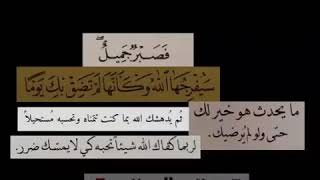 فَصَبْرٌ جَمِيلٌ
سَيُفرجُها اللهُ وَكَأنَّهَا لَمْ تَضق بِكَ يَوْمًا
ما يحدث هو خير لك
حتى ولو لم يُرضيك.
ثُم يُدهشك الله بما كنت تتمناه وتحسبه مستحيلاً
لربما كهاك الله شيئاً تحبه كي لا يمسّك ضرر.